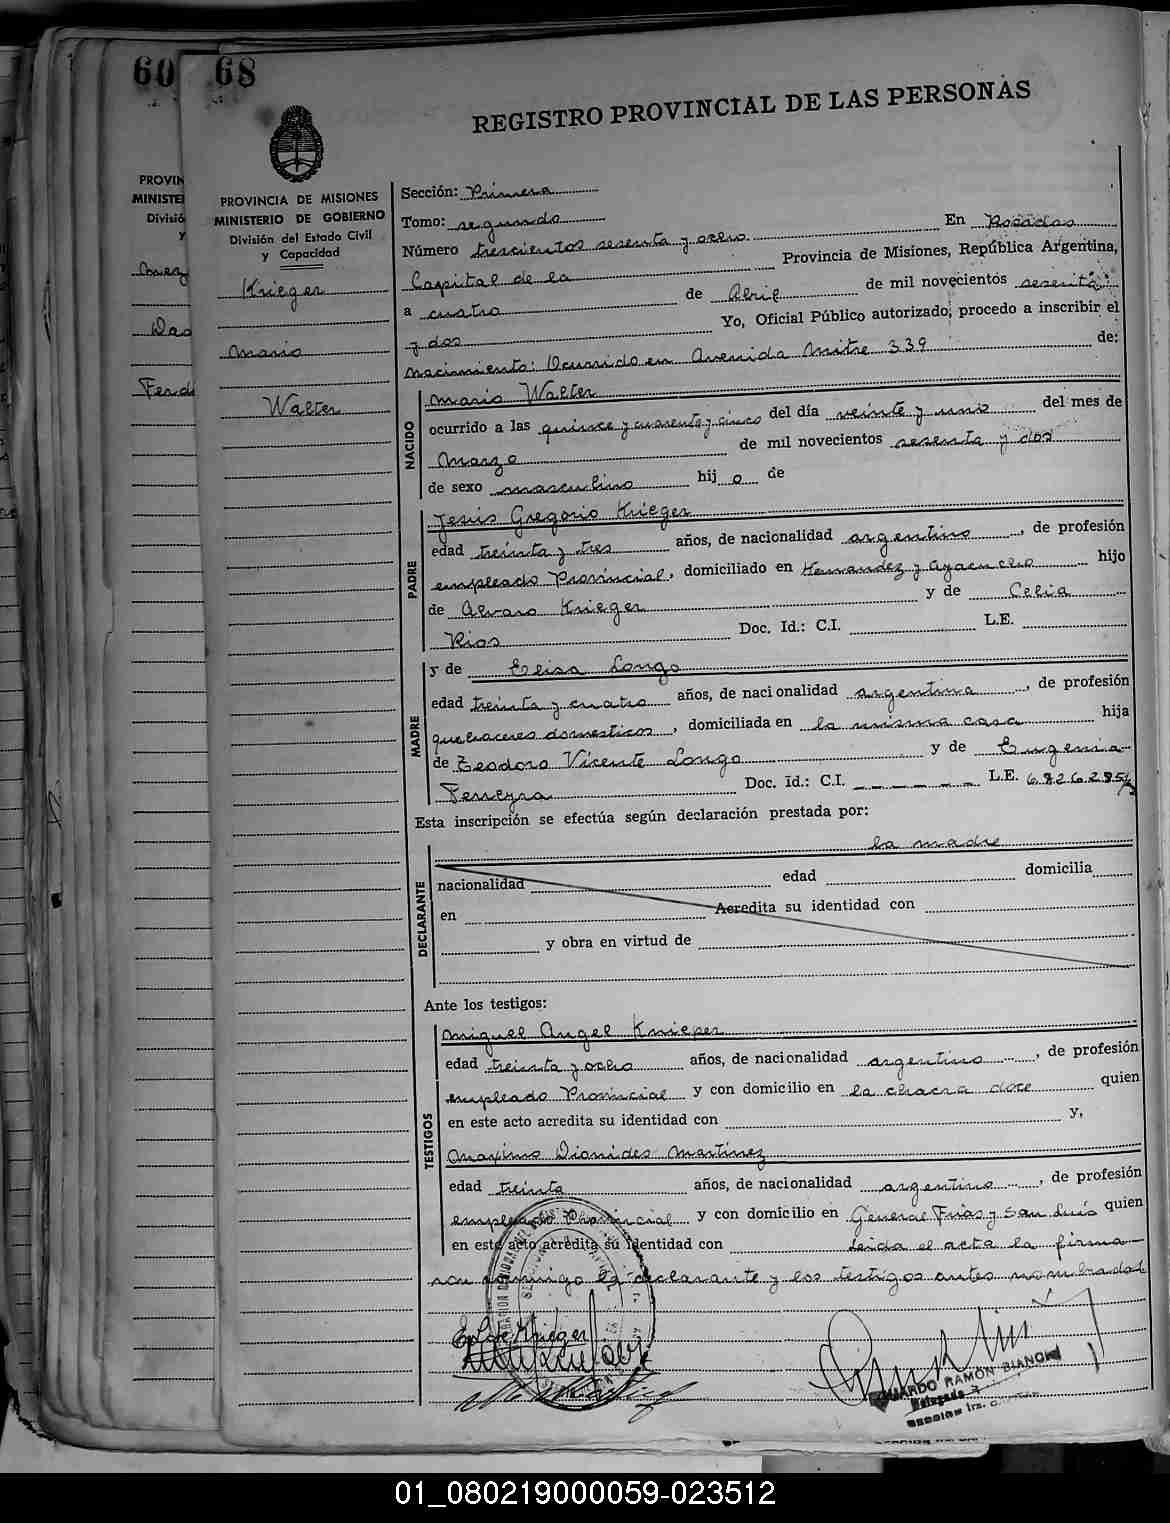 60 68
REGISTRO PROVINCIAL DE LAS PERSONAS
PROVIN
MINISTE
Divisió
y
PROVINCIA DE MISIONES
MINISTERIO DE GOBIERNO
División del Estado Civil
y Capacidad
Krieger
Mario
Walter
Sección: Primera
Tomo: segundo
En Posadas
Número trescientos sesenta y ocho
Capital de la Provincia de Misiones, República Argentina,
a cuatro de Abril de mil novecientos sesenta
y dos Yo, Oficial Público autorizado, procedo a inscribir el
nacimiento: Ocurrido en Avenida Mitre 339 de:
NACIDO
Mario Walter
ocurrido a las quince y cuarenta y cinco del día veinte y uno del mes de
Marzo de mil novecientos sesenta y dos
de sexo masculino hij o de
PADRE
Jesús Gregorio Krieger
edad treinta y tres años, de nacionalidad argentino, de profesión
empleado Provincial, domiciliado en Hernandez y Ayacucho hijo
de Alvaro Krieger y de Celia
Rios Doc. Id.: C.I. L.E.
MADRE
y de Elisa Longo
edad treinta y cuatro años, de nacionalidad argentina, de profesión
quehaceres domesticos, domiciliada en la misma casa hija
de Teodoro Vicente Longo y de Eugenia
Ferreyra Doc. Id.: C.I. L.E.
Esta inscripción se efectúa según declaración prestada por:
la madre
DECLARANTE
nacionalidad edad domicilia
en Acredita su identidad con
y obra en virtud de
Ante los testigos:
TESTIGOS
Miguel Angel Knieper
edad treinta y ocho años, de nacionalidad argentino, de profesión
empleado Provincial y con domicilio en la chacra doce quien
en este acto acredita su identidad con y,
Maximo Dionides Martinez
edad treinta años, de nacionalidad argentino, de profesión
empleado Provincial y con domicilio en General Frias y San Luis quien
en este acto acredita su identidad con Leida el acta la firma
con conmigo la declarante y los testigos antes nombrados
EDUARDO RAMÓN BIANCHI
Delegado
01_080219000059-023512